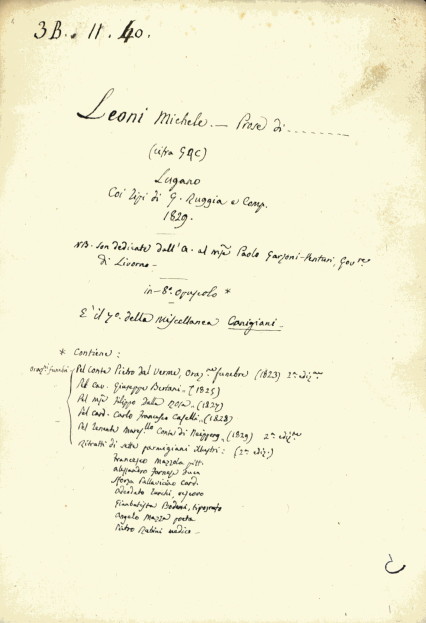 3B. 11. 40.
Leoni Michele. — Prose di........
(cifra GRC)
Lugano
Coi Tipi di G. Ruggia e Comp.
1829.
NB. Son dedicate dall'A. al mse Paolo Garzoni-Venturi, Gov.re
di Livorno.—
in-8.º opuscolo *
E' il 7º. della Miscellanea Canigiani.—
* Contiene :
Oraz.i funebri
Pel Conte Pietro dal Verme, Oraz.ne funebre (1823) 2.a ediz.ne
Pel Cav. Giuseppe Bertani.— (1825)
Pel mse Filippo Dalla Rosa.— (1827)
Pel card. Carlo Francesco Caselli.— (1828)
Pel Tenente Maresc.llo Conte di Neipperg.— (1829) 2.a ediz.ne
Ritratti di sette parmigiani illustri: (2.a ediz.)
Francesco Mazzola pitt.
Alessandro Farnese Duca
Sforza Pallavicino Card.
Adeodato Turchi, vescovo
Giambatista Bodoni, tipografo
Angelo Mazza poeta
Pietro Rubini medico.—